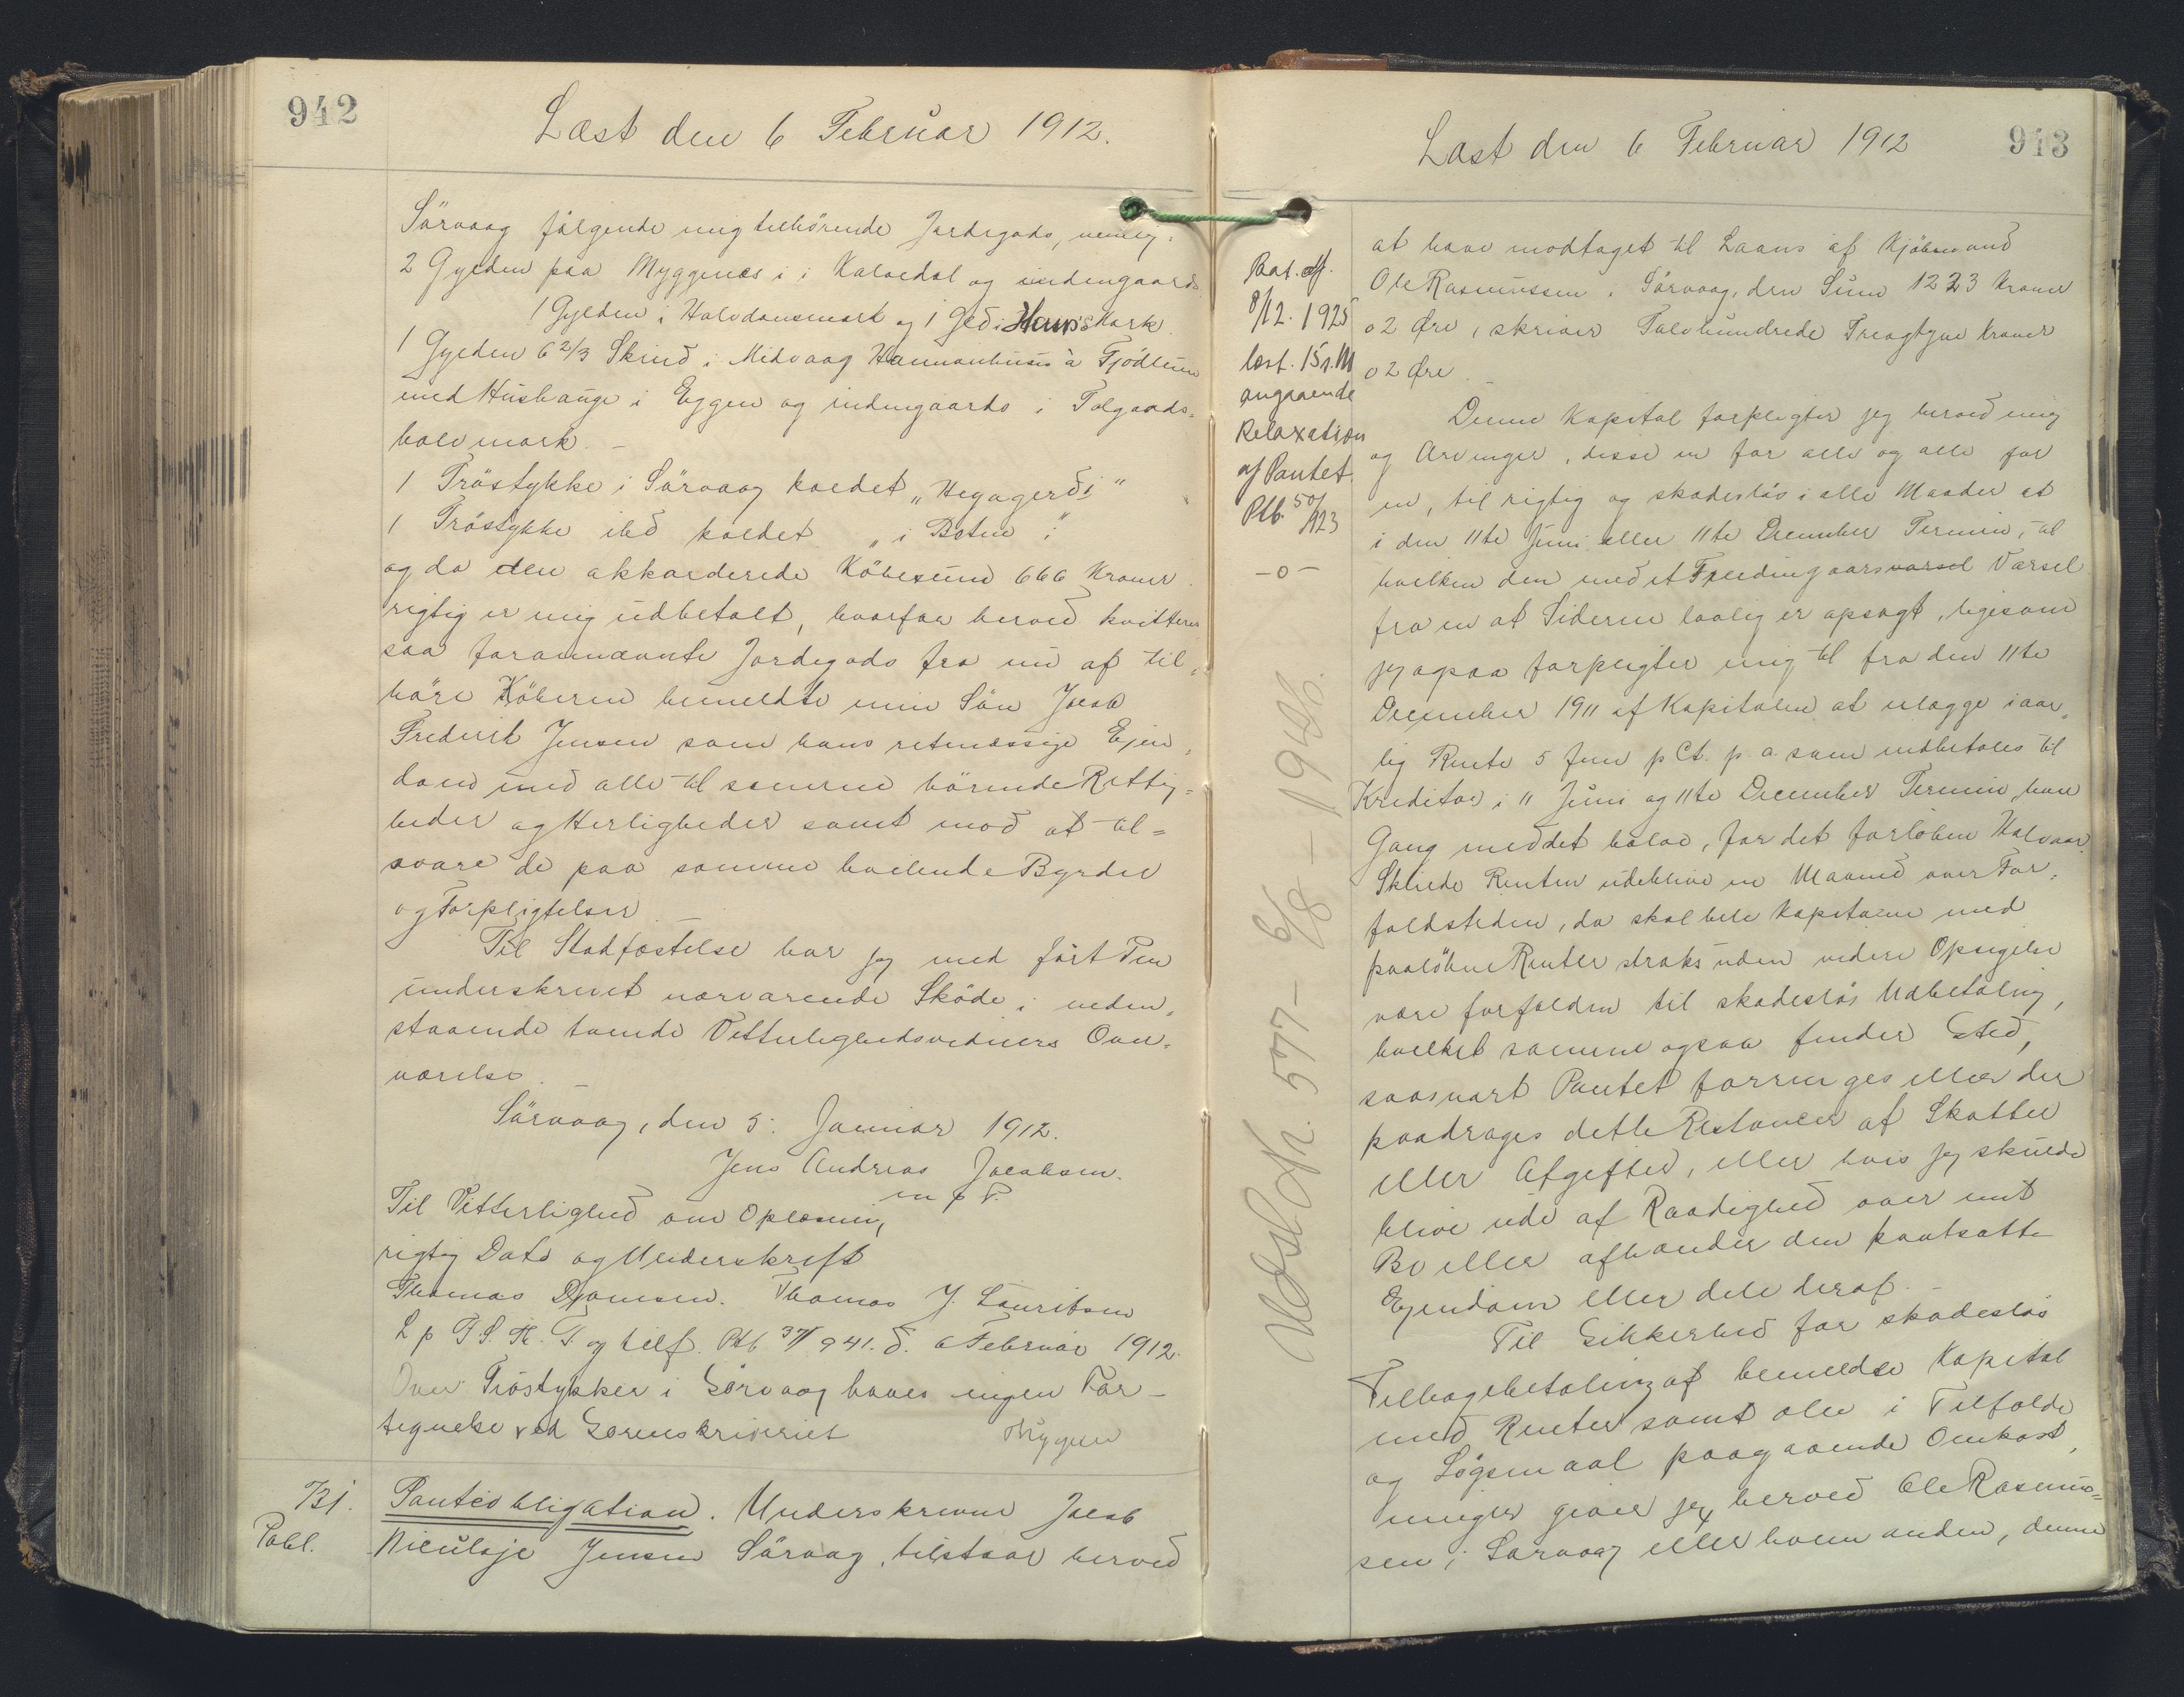 942
Læst den 6 Februar 1912.
Sörvaag fölgende mig tilhörende Jordegods, nemlig:
2 Gylden paa Myggenæs i i Kalvedal og indengaards
1 Gylden i Halvdansmark og 1 Geð i Haups Mark
1 Gylden 6 2/3 Skind i Midvaag Hammanhusis à Fjödlum
med Hushauge i Eggen og indengaards i Tolgaards-
halvmark. –
1 Tröstykke i Sörvaag kaldet „Heyagerði"
1 Tröstykke ibd kaldet „i Botni"
og da den akkorderede Köbesum 666 Kroner
rigtig er mig udbetalt, hvorfor herved kvitteres
saa forannævnte Jordegods fra nu af til-
höre Köberen bemeldte min Sön Jacob
Frederik Jensen som hans retmæssige Ejen-
dom med alle til samme hörende Rettig-
heder og Herligheder samt mod at til-
svare de paa samme hvilende Byrder
og Forpligtelser
Til Stadfæstelse har jeg med fört Pen
underskrevet nærværende Sköde i neden-
staaende tvende Vitterlighedsvidners Over-
værelse. –
Sörvaag, den 5. Januar 1912.
Jens Andreas Jacobsen.
m p P.
Til Vitterlighed om Oplæsning,
rigtig Dato og Underskrift
Thomas Djonsen. Thomas J. Lauritsen
L p F. S. R. T og tilf. Ptb 37/941. d. 6 Februar 1912.
Over Tröstykker i Sörvaag haves ingen For-
tegnelse ved Sorenskriveriet
Myggen
Bj.
Pabl.
Panteobligation. Underskrevne Jacob
Niculaje Jensen Sörvaag, tilstaar herved
Læst den 6 Februar 1912
943
Paat. aff.
8/12. 1925
læst. 15 s. M
angaaende
Relaxation
af Pantet.
Ptb. 50/923
–o–
Udslettet. 577 – 6/8 – 1946.
at have modtaget til Laans af Kjöbmand
Ole Rasmussen, Sörvaag, den Sum 1223 Kroner
02 Øre, skriver Tolvhundrede Treogtyve Kroner
02 Øre
Denne Kapital forpligter jeg herved mig
og Arvinger, disse en for alle og alle for
en, til rigtig og skadeslös i alle Maader at
i den 11te Juni eller 11te December Termin, til
hvilken den med et Fjerdingaarsvarsel Varsel
fra en af Siderne lovlig er opsagt, ligesom
jeg ogsaa forpligter mig til fra den 11te
December 1911 af Kapitalen at erlægge i aar-
lig Rente 5 fem p Ct. p. a. som indbetales til
Kreditor i 11 Juni og 11te December Termin, hver
Gang med det halve, for det forlöbne Halvaar.
Skulde Renten udeblive en Maaned over For-
faldstiden, da skal hele Kapitalen med
paalöbne Renter straks uden videre Opsigelse
være forfalden til skadeslös Udbetaling,
hvilket samme ogsaa finder Sted,
saasnart Pantet forringes eller der
paadrages dette Restancer af Skatter
eller Afgifter, eller hvis jeg skulde
blive ude af Raadighed over mit
Bo eller afhænder den pantsatte
Ejendom eller dele deraf. –
Til Sikkerhed for skadeslös
Tilbagebetaling af bemeldte Kapital
med Renter samt alle i Tilfælde
og Sögsmaal paagaaende Omkost-
ninger giver jeg herved Ole Rasmus-
sen i Sörvaag eller hvem anden, denne